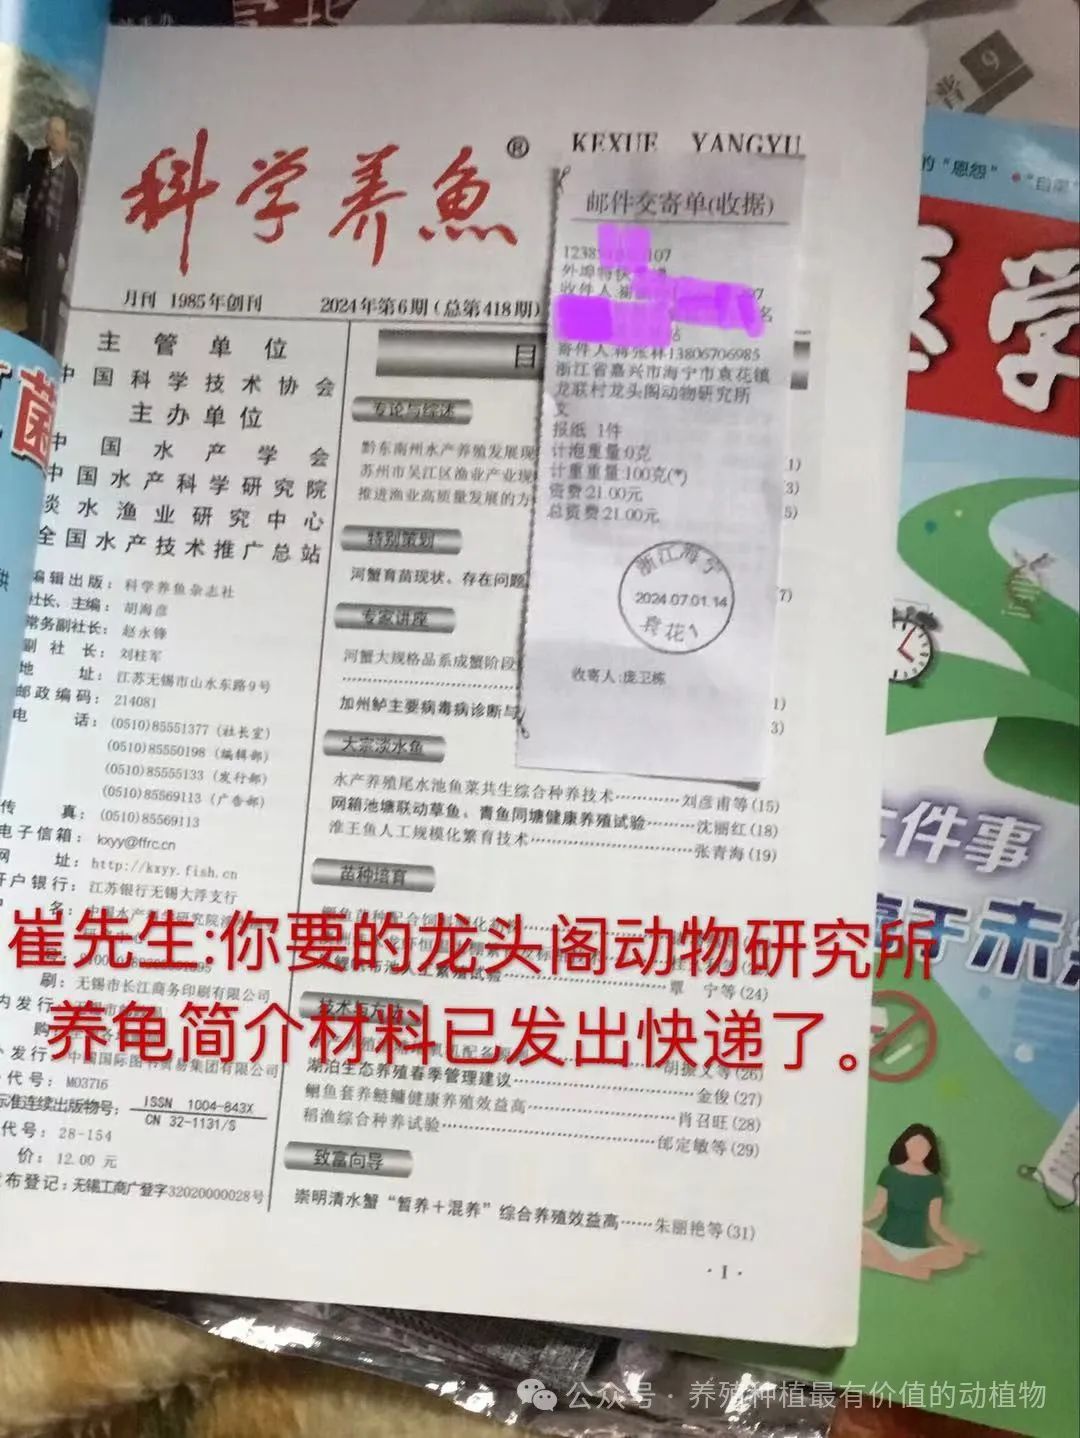 科学养魚®
KEXUE YANGYU
月刊 1985年创刊 2024年第6期(总第418期)
主管单位
中国科学技术协会
主办单位
中国水产学会
中国水产科学研究院
淡水渔业研究中心
全国水产技术推广总站
编辑出版：科学养鱼杂志社
社长、主编：胡海彦
常务副社长：赵永锋
副社长：刘柱军
地址：江苏无锡市山水东路9号
邮政编码：214081
电话：(0510)85551377(社长室)
(0510)85550198(编辑部)
(0510)85555133(发行部)
(0510)85569113(广告部)
传真：(0510)85569113
电子信箱：kxyy@ffrc.cn
网址：http://kxyy.fish.cn
开户银行：江苏银行无锡大浮支行
刷：无锡市长江商务印刷有限公司
中国国际图书贸易集团有限公司
代号：M03716
标准连续出版物号：ISSN 1004-843X
CN 32-1131/S
代号：28-154
价：12.00元
发布登记：无锡工商广登字32020000028号
目
专论与综述
黔东南州水产养殖发展现
苏州市吴江区渔业产业现
推进渔业高质量发展的方
特别策划
河蟹育苗现状、存在问题
专家讲座
河蟹大规格品系成蟹阶段
加州鲈主要病毒病诊断与
大宗淡水鱼
水产养殖尾水池鱼菜共生综合种养技术…………刘彦甫等(15)
网箱池塘联动草鱼、青鱼同塘健康养殖试验………沈丽红(18)
淮王鱼人工规模化繁育技术…………………………张青海(19)
苗种培育
覃宁等(24)
技术与方法
胡振义等(26)
湖泊生态养殖春季管理建议…………………………金俊(27)
鮰鱼套养鲢鳙健康养殖效益高………………………肖召旺(28)
稻渔综合种养试验……………………………………邰定敏等(29)
致富向导
崇明清水蟹“暂养＋混养”综合养殖效益高……朱丽艳等(31)
·I·
邮件交寄单(收据)
1238
107
外埠特快
收件人
名
寄件人:蒋张林13806706985
浙江省嘉兴市海宁市袁花镇
龙联村龙头阁动物研究所
文
报纸 1件
计泡重量:0克
计重重量:100克(*)
资费:21.00元
总资费:21.00元
浙江海宁
2024.07.01.14
袁花1
收寄人:庞卫栋
的“恩怨”
医学
七件事
于未
菌
崔先生:你要的龙头阁动物研究所
养龟简介材料已发出快递了。
公众号·养殖种植最有价值的动植物